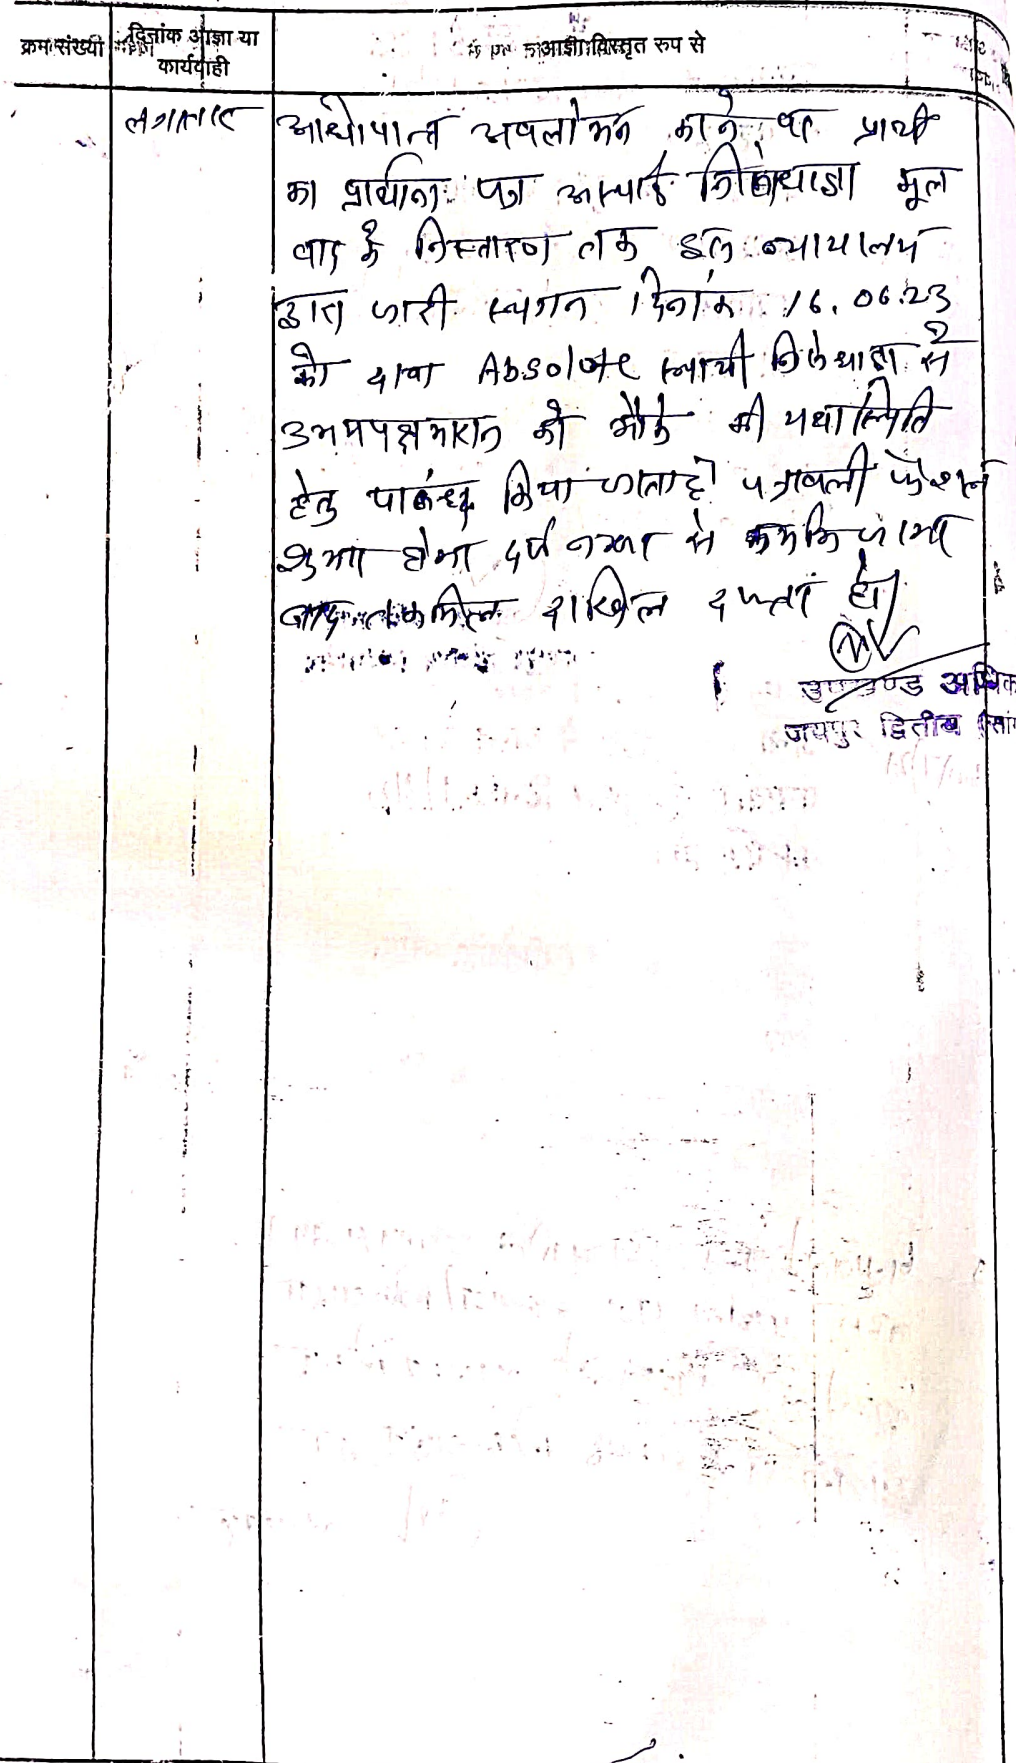 क्रम संख्या
दिनांक आज्ञा या
कार्यवाही
आज्ञा विस्तृत रुप से
लगातार
आधोपान्त अवलोकन करने पर प्रार्थी
का प्रार्थना पत्र अस्थाई निषेधाज्ञा मूल
वाद के निस्तारण तक इस न्यायालय
द्वारा जारी स्थगन दिनांक 16.06.23
को Absolute स्थायी निषेधाज्ञा से
उभयपक्षकारान को मौके की यथास्थिति
हेतु पाबंद किया जाता है। पत्रावली फैसल
शुमार होकर दर्ज नम्बर से कम कि जाकर
बाद तकमिल दाखिल दफ्तर हो।
उपखण्ड अधिक
जयपुर द्वितीय (सां